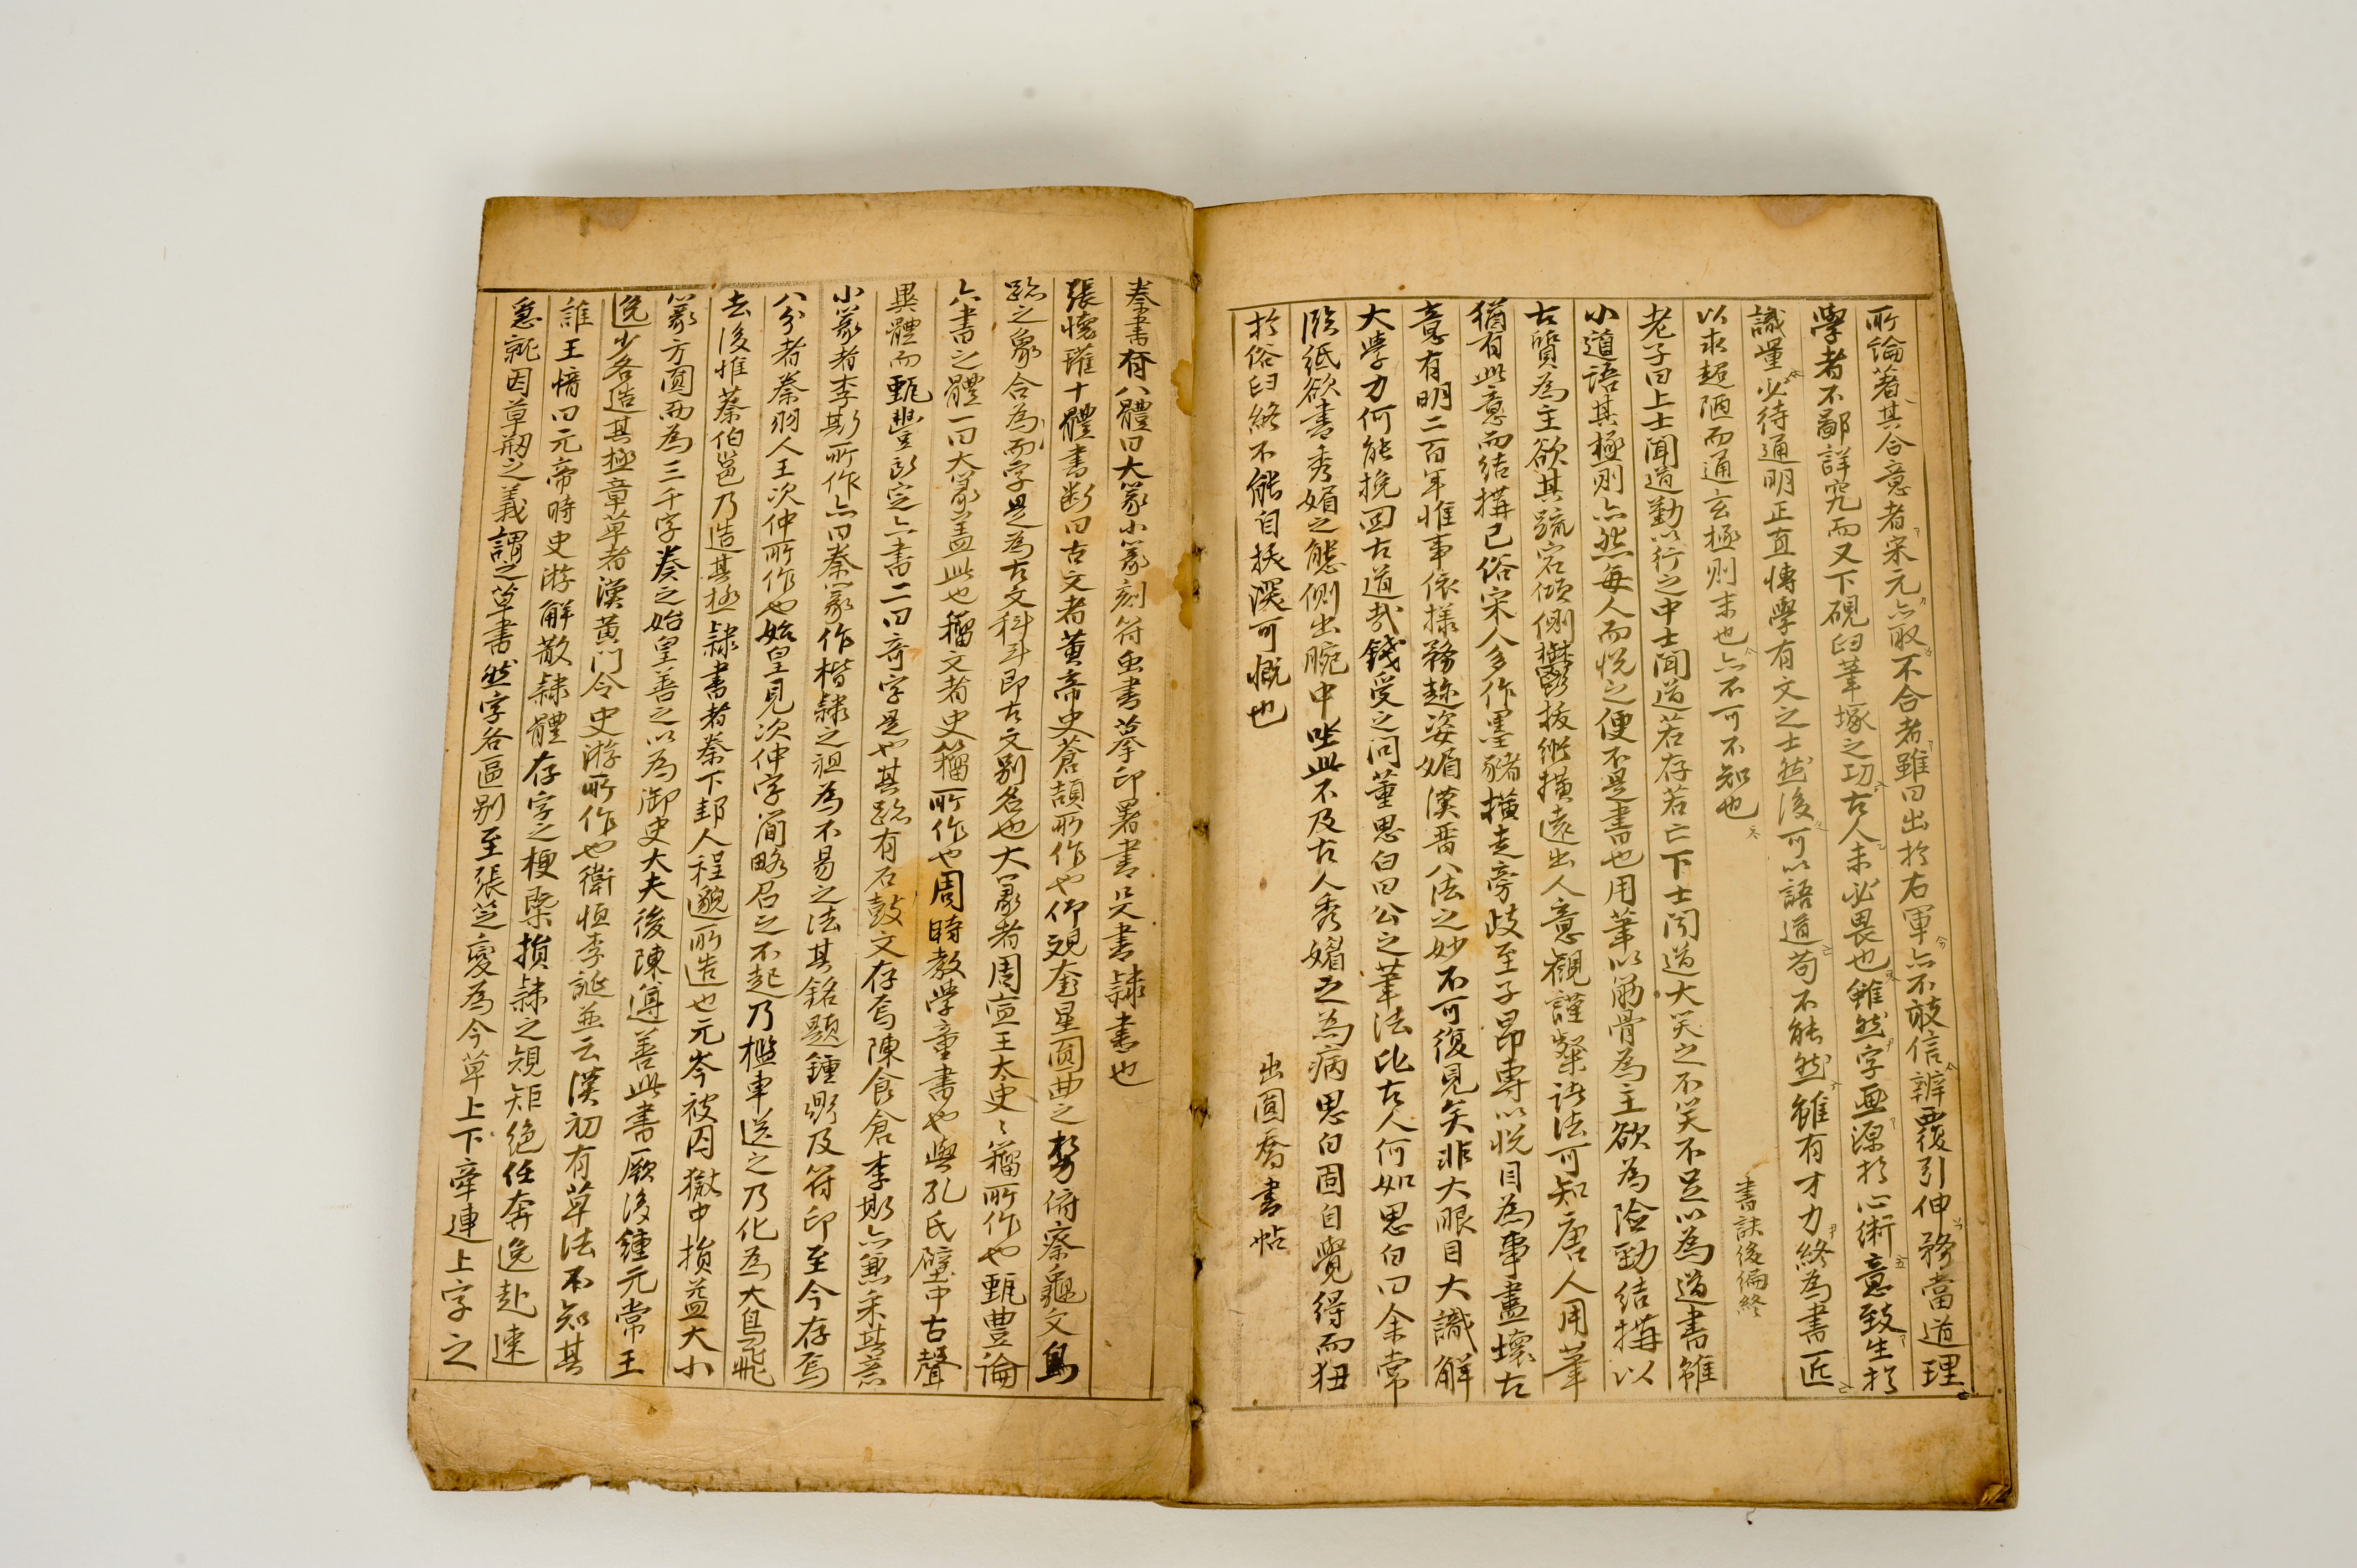 所論著其合意者宋元亦取不合者雖曰出於右軍亦不敢信辨覆引伸務當道理
學者不鄙詳究而又下硯臼筆塚之功古人未必畏也雖然字畫源於心術意致生於
識量必待通明正直博學有文之士然後可以語道苟不能然雖有才力終為書匠
以求超陋而通玄極則末也亦不可不知也 書訣後編終
老子曰上士聞道勤以行之中士聞道若存若亡下士聞道大笑之不笑不足以為道書雖
小道語其極則亦然每人而悅之便不是書也用筆以筋骨為主欲為險勁結搆以
古質為主欲其疏宕傾側鬱拔縱橫遠出人意觀謹槃話法可知唐人用筆
猶有此意而結搆已俗宋人多作墨豬橫走旁歧至子昂專以悅目為事盡壞古
意有明二百年惟事依樣務趍姿媚漢晋八法之妙不可復見矣非大眼目大識解
大學力何能挽回古道哉錢受之問董思白曰公之筆法比古人何如思白曰余常
臨紙欲書秀媚之態側出腕中坐此不及古人秀媚之為病思白固自覺得而狃
於俗臼終不能自拔深可慨也 出圓嶠書帖
秦書有八體曰大篆小篆刻符虫書摹印署書殳書隸書也
張懷瓘十體書断曰古文者黃帝史蒼頡所作也仰觀奎星圓曲之勢俯察龜文鳥
跡之象合為而字是為古文科斗即古文別名也大篆者周宣王太史〻籒所作也甄豊論
六書之體一曰大篆盖此也籒文者史籒所作也周時教學童書也與孔氏壁中古聲
異體而甄豐所定六書二曰奇字是也其跡有石鼓文存焉陳倉李斯亦兼采其意
小篆者李斯所作亦曰秦篆作楷隸之祖為不易之法其銘題鍾鼎及符印至今存焉
八分者秦羽人王次仲所作也始皇見次仲字簡略召之不起乃檻車送之乃化為大鳥飛
去後惟蔡伯邕乃造其極隸書者秦下邽人程邈所造也元岑被囚獄中損益大小
篆方圓而為三千字奏之始皇善之以為御史大夫後陳遵善此書厥後鍾元常王
逸少各造其極章草者漢黃門令史游所作也衛恒李誕並云漢初有草法不知其
誰王愔曰元帝時史游解散隸體存字之梗槩損隸之規矩絕任奔逸赴速
急就因草刱之義謂之草書然字各區别至張芝變為今草上下牽連上字之